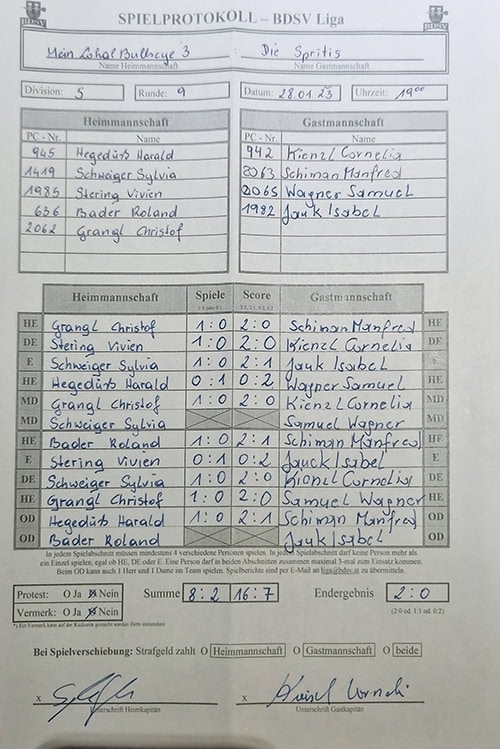 SPIELPROTOKOLL – BDSV Liga
Mein Lokal Bullseye 3 Die Spritis
Name Heimmannschaft Name Gastmannschaft
Division: 5 Runde: 9 Datum: 28.01.23 Uhrzeit: 19⁰⁰
Heimmannschaft Gastmannschaft
PC - Nr. Name PC - Nr. Name
945 Hegedüs Harald 942 Kienzl Cornelia
1419 Schweiger Sylvia 2063 Schiman Manfred
1985 Stering Vivien 2065 Wagner Samuel
636 Bader Roland 1982 Jauk Isabel
2062 Grangl Christof
Heimmannschaft Spiele Score Gastmannschaft
HE Grangl Christof 1:0 2:0 Schiman Manfred HE
DE Stering Vivien 1:0 2:0 Kienzl Cornelia DE
E Schweiger Sylvia 1:0 2:1 Jauk Isabel E
HE Hegedüs Harald 0:1 0:2 Wagner Samuel HE
MD Grangl Christof 1:0 2:0 Kienzl Cornelia MD
MD Schweiger Sylvia Samuel Wagner MD
HE Bader Roland 1:0 2:1 Schiman Manfred HE
E Stering Vivien 0:1 0:2 Jauck Isabel E
DE Schweiger Sylvia 1:0 2:0 Kienzl Cornelia DE
HE Grangl Christof 1:0 2:0 Samuel Wagner HE
OD Hegedüs Harald 1:0 2:1 Schiman Manfred OD
OD Bader Roland Jauk Isabel OD
In jedem Spielabschnitt müssen mindestens 4 verschiedene Personen spielen. In jedem Spielabschnitt darf keine Person mehr als
ein Einzel spielen, egal ob HE, DE oder E. Eine Person darf in beiden Abschnitten zusammen maximal 3-mal zum Einsatz kommen.
Beim OD kann auch 1 Herr und 1 Dame im Team spielen. Spielberichte sind per E-Mail an liga@bdsv.at zu übermitteln.
Protest: O Ja O Nein Summe 8:2 16:7 Endergebnis 2:0
Vermerk: O Ja O Nein (2:0 od. 1:1 od. 0:2)
*) Ein Vermerk kann auf der Rückseite gemacht werden (bitte umwenden)
Bei Spielverschiebung: Strafgeld zahlt O Heimmannschaft O Gastmannschaft O beide
x x
Unterschrift Heimkapitän Unterschrift Gastkapitän